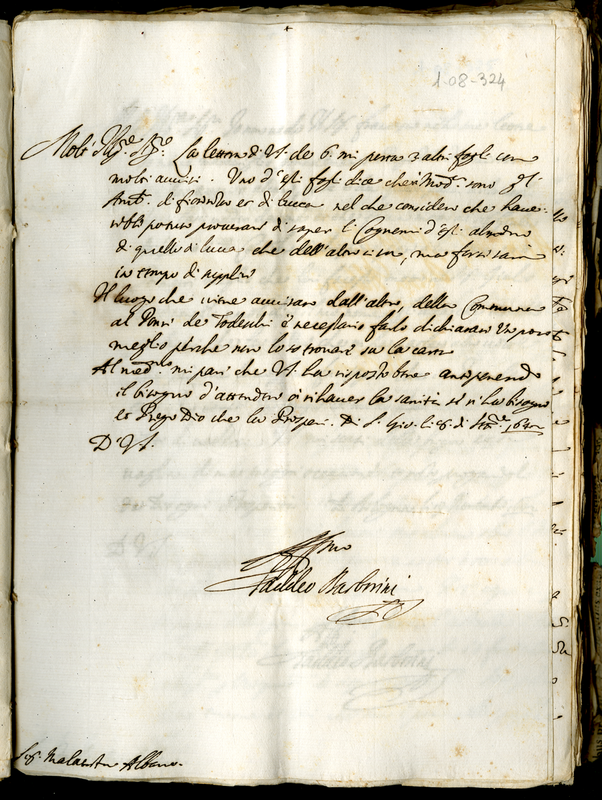 1-08-324
Molt' Ill.re Sig.re La lettera di V.S. de 6. mi porta 3 altri fogli con
molti avvisi. Uno d'essi fogli dice che in Mod.a sono gl'
Amb.ri di fiorenza et di Lucca nel che considero che have-
rebbe potuto procurare di saper i Cognomi d'essi almeno
di quello di Lucca che dell'altro si sa, ma forsi sarà
in tempo di supplir
Il luogo che viene avvisato dall'altro, della Communa
al Ponte de Todeschi è necessario farlo dichiarare un poco
meglio perche non lo so trovare su la carta
Al med.mo mi pare che V.S. ha risposto bene anteponendo
il bisogno d'attendere à rihaver la sanità se n'ha bisogno
et Prego Dio che la Prosperi. Di S. Gio. li 8. di 1642
D. V.S.
Aff.mo
Taddeo Barberini
Sig. Malatesta Albano.